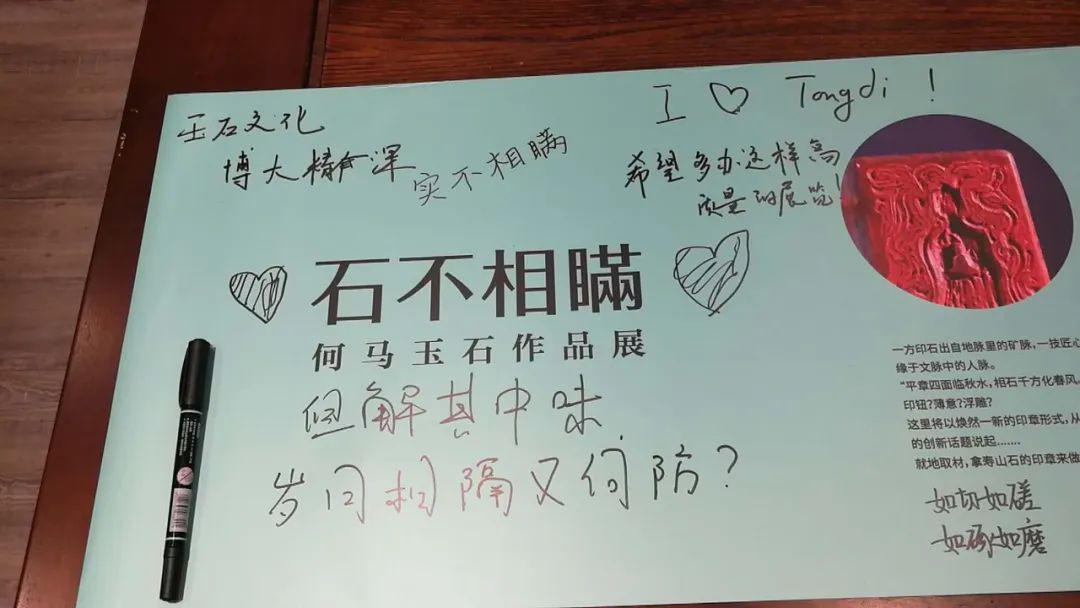 玉石文化
博大精深
实不相瞒
I ♡ Tongdi !
希望多办这样高
质量的展览!
石不相瞒
何马玉石作品展
但解其中味
岁月相隔又何防?
一方印石出自地脉里的矿脉,一技匠心
缘于文脉中的人脉。
“平章四面临秋水,相石千方化春风。
印钮?薄意?浮雕?
这里将以焕然一新的印章形式,从
的创新话题说起.......
就地取材,拿寿山石的印章来做
如切如磋
如琢如磨